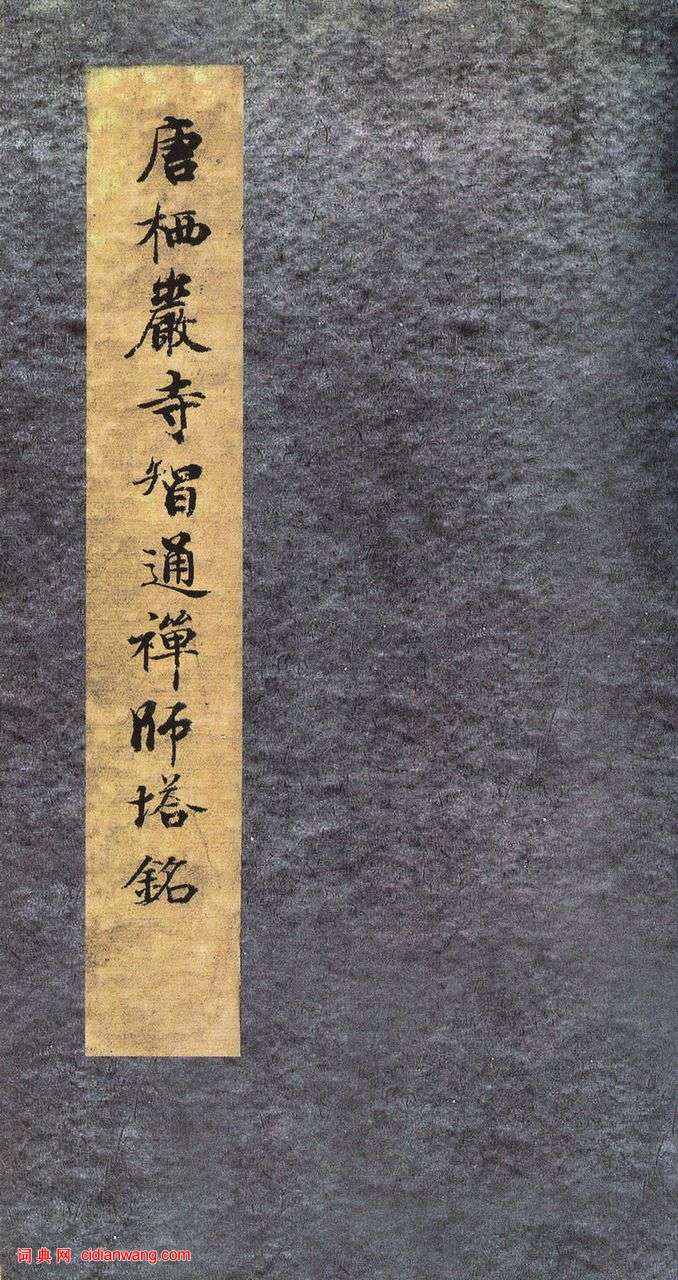 唐栖巖寺智通禪師塔銘
词典网 cidianwang.com